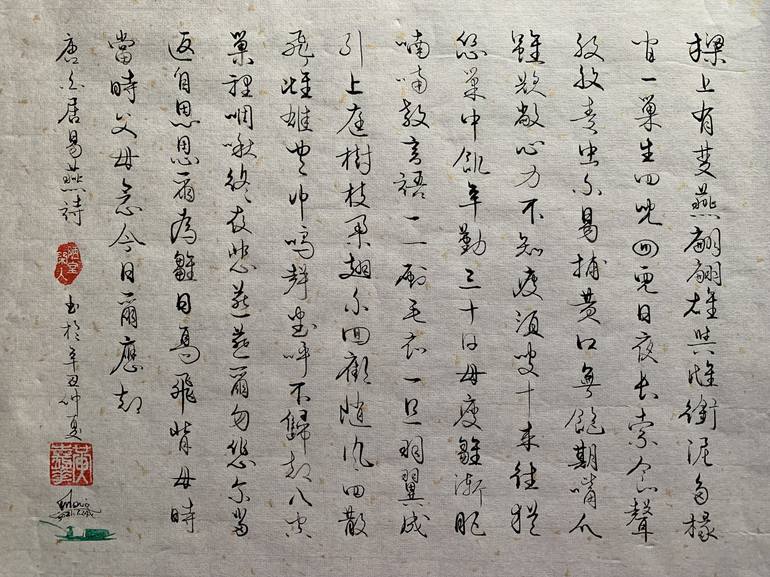 樑上有雙燕翩翩雄與雌銜泥兩椽
间一巢生四兒四兒日夜長索食聲
孜孜青虫不易捕黄口無飽期嘴爪
雖欲敝心力不知疲須臾十來往猶
恐巢中飢辛勤三十日母瘦雛漸肥
喃喃教言語一一刷毛衣一旦羽翼成
引上庭樹枝舉翅不回顧隨風四散
飛雌雄空中鳴聲盡呼不歸却入空
巢裡啁啾終夜悲燕燕爾勿悲尔當
返自思思爾為雛日高飛背母時
當時父母念今日爾應知
唐白居易燕詩 書於辛丑仲夏